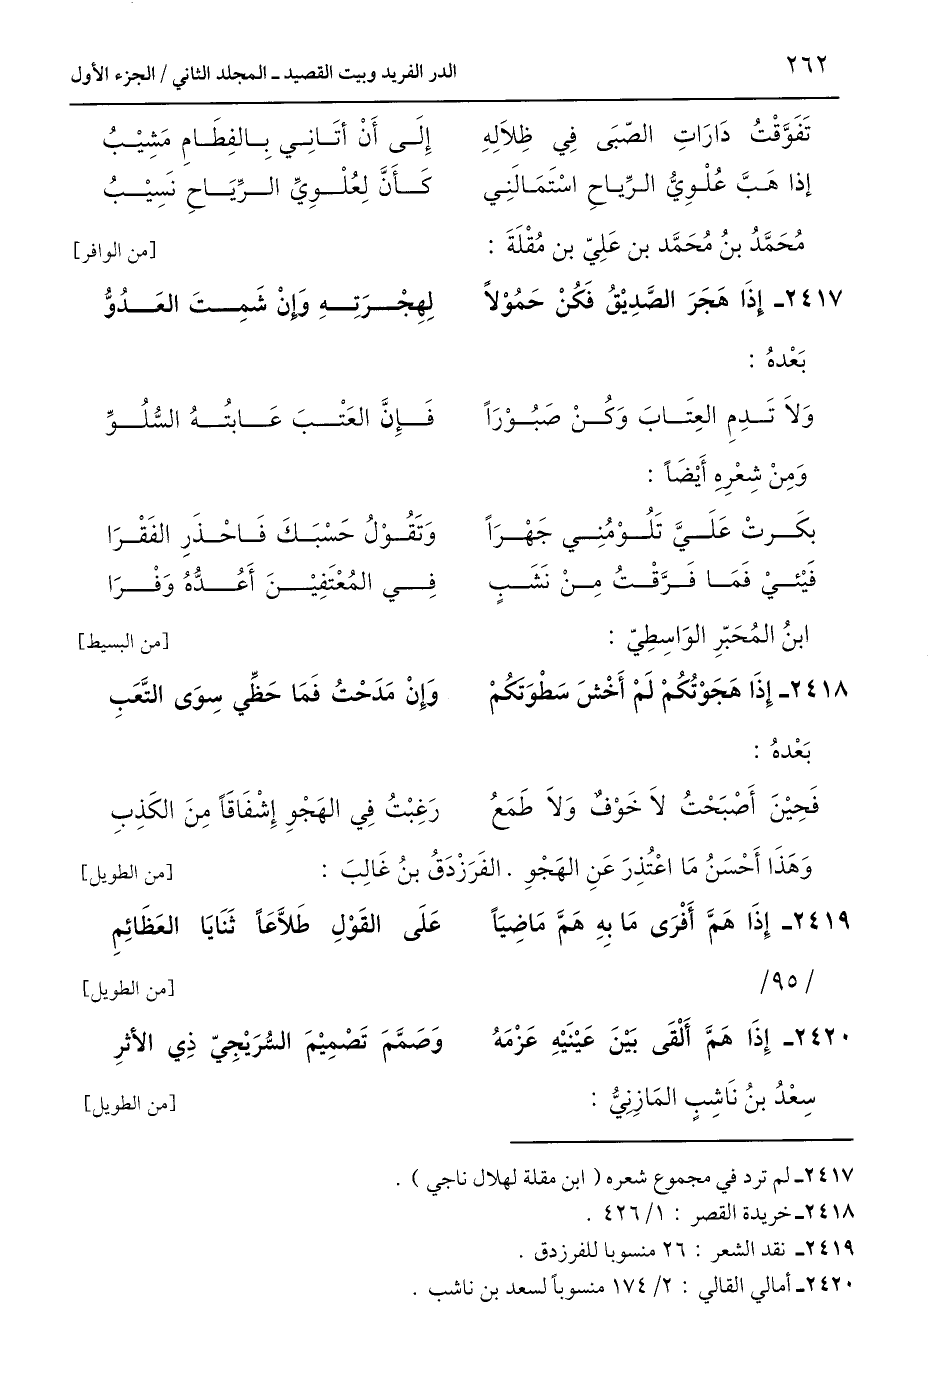 ٢٦٢ الدر الفريد وبيت القصيد ـ المجلد الثاني / الجزء الأول
تَفَوَّقْتُ دَارَاتِ الصِّبَى فِي ظِلاَلِهِ إِلَـى أَنْ أتَـانِـي بِـالفِطَـامِ مَشِيْـبُ
إذا هَـبَّ عُلْوِيُّ الـرِّياحِ اسْتَمَـالَنِي كَــأنَّ لِعُلْـوِيِّ الــرِّيَـاحِ نَسِيْــبُ
مُحَمَّدُ بنُ مُحَمَّد بن عَلِيّ بن مُقْلَةَ : [من الوافر]
٢٤١٧ـ إِذَا هَجَرَ الصَّدِيْقُ فَكُنْ حَمُوْلاً لِهِجْــرَتِــهِ وَإنْ شَمِــتَ العَــدُوُّ
بَعْدهُ :
وَلاَ تَــدِمِ العِتَــابَ وَكُــنْ صَبُــوْرَاً فَــإِنَّ العَتْــبَ عَــابتُــهُ السُّلُــوِّ
وَمِنْ شِعْرِهِ أَيْضَاً :
بكَــرتْ عَلَــيَّ تَلُــوْمُنِــي جَهْــرَاً وَتَقُــوْلُ حَسْبَــكَ فَــاحْــذَرِ الفَقْــرَا
فَيْئِــيْ فَمَــا فَــرَّقْــتُ مِــنْ نَشَــبٍ فِــي المُعْتَفِيْــنَ أَعُــدُّهُ وَفْــرَا
ابنُ المُحَبّرِ الوَاسِطِيّ : [من البسيط]
٢٤١٨ـ إِذَا هَجَوْتُكُمْ لَمْ أَخْشَ سَطْوَتَكُمْ وَإنْ مَدَحْتُ فَمَا حَظِّي سِوَى التَّعَبِ
بَعْدهُ :
فَحِيْنَ أَصْبَحْتُ لاَ خَوْفٌ وَلاَ طَمَعُ رَغِبْتُ فِي الهَجْوِ إشْفَاقَاً مِنَ الكَذِبِ
وَهَذَا أَحْسَنُ مَا اعْتُذِرَ عَنِ الهَجْوِ . الفَرَزْدَقُ بنُ غَالِبَ : [من الطويل]
٢٤١٩ـ إِذَا هَمَّ أَفْرَى مَا بِهِ هَمَّ مَاضِيَاً عَلَى القَوْلِ طَلاَّعَاً ثَنَايَا العَظَائِمِ
/ ٩٥/ [من الطويل]
٢٤٢٠ـ إِذَا هَمَّ أَلْقَى بَيْنَ عَيْنَيْهِ عَزْمَهُ وَصَمَّمَ تَصْمِيْمَ السُّرَيْجِيّ ذِي الأثرِ
سِعْدُ بنُ نَاشِبٍ المَازِنِيُّ : [من الطويل]
٢٤١٧ـ لم ترد في مجموع شعره ( ابن مقلة لهلال ناجي ) .
٢٤١٨ـ خريدة القصر : ١/ ٤٢٦ .
٢٤١٩ـ نقد الشعر : ٢٦ منسوبا للفرزدق .
٢٤٢٠ـ أمالي القالي : ٢/ ١٧٤ منسوباً لسعد بن ناشب .